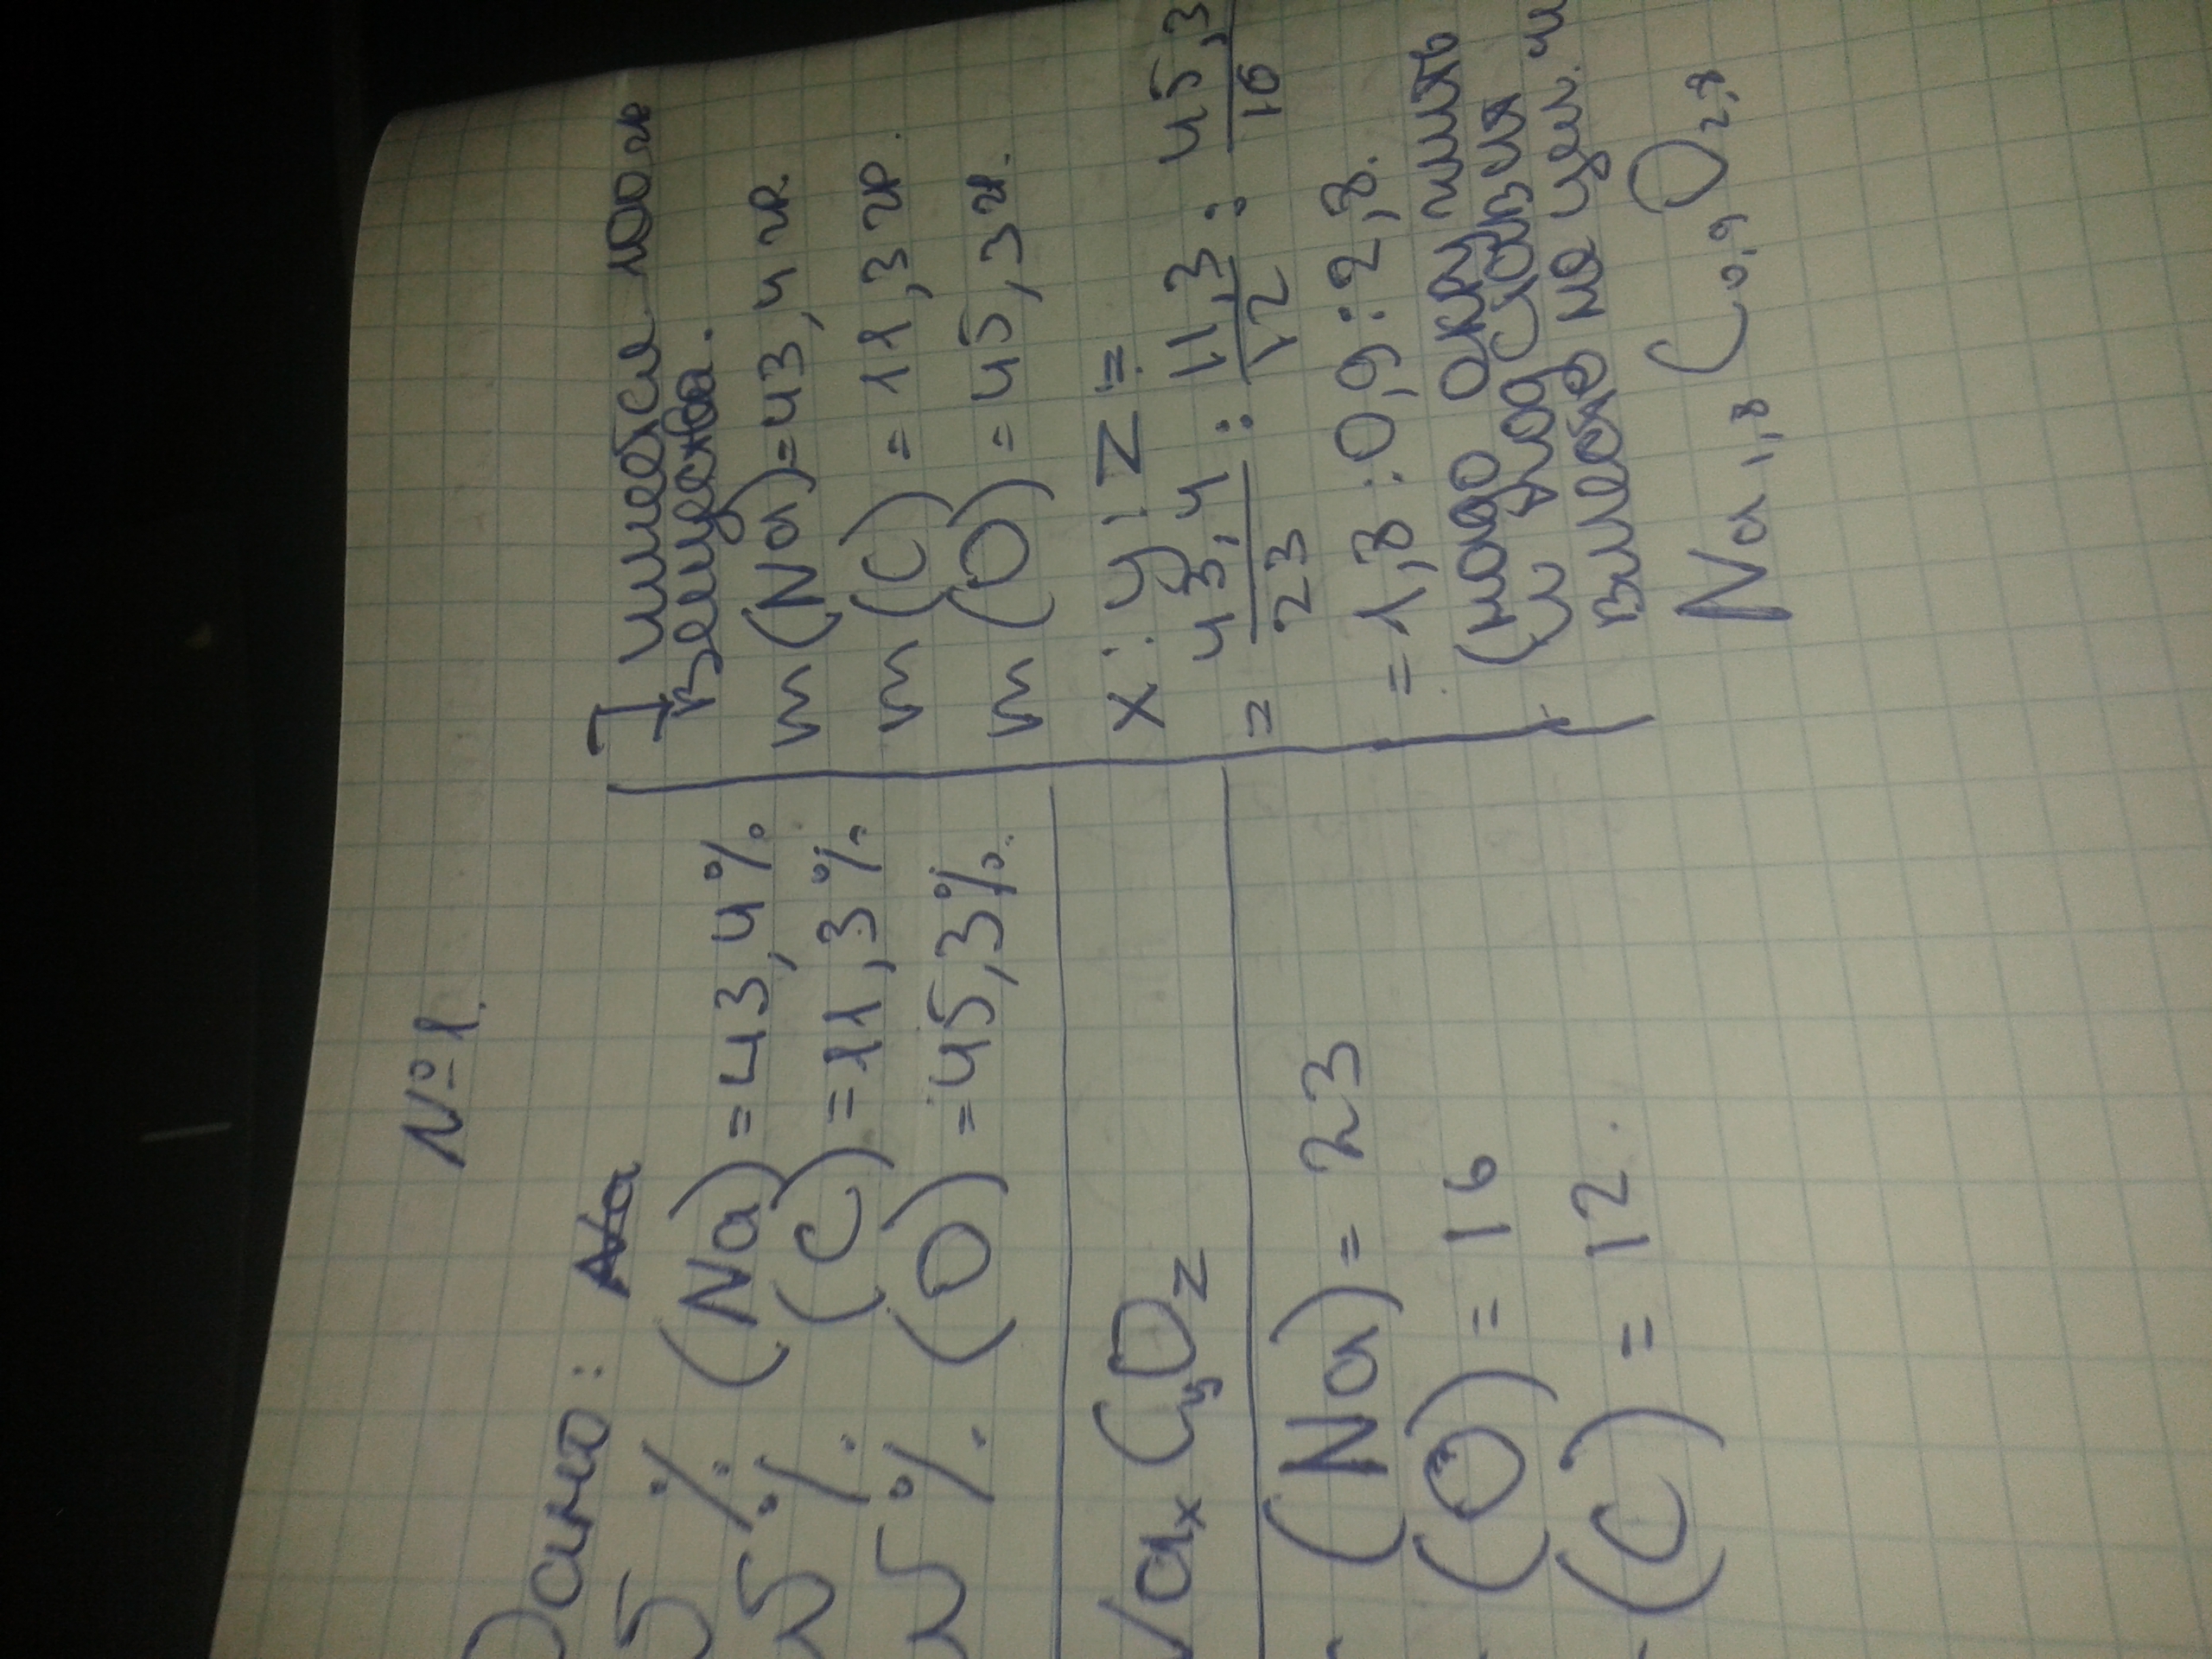 № 1.
Дано: Na
ω% (Na) = 43,4%
ω% (C) = 11,3%
ω% (O) = 45,3%.
NaxCyOz
(Na) = 23
(O) = 16
(C) = 12.
имеется 100 гр
вещества.
m(Na) = 43,4 гр.
m(C) = 11,3 гр.
m(O) = 45,3 гр.
x : y : z =
= 43,4/23 : 11,3/12 : 45,3/16
= 1,8 : 0,9 : 2,8.
(надо округлить
и
вместо на цел.
Na1,8 C0,9 O2,8